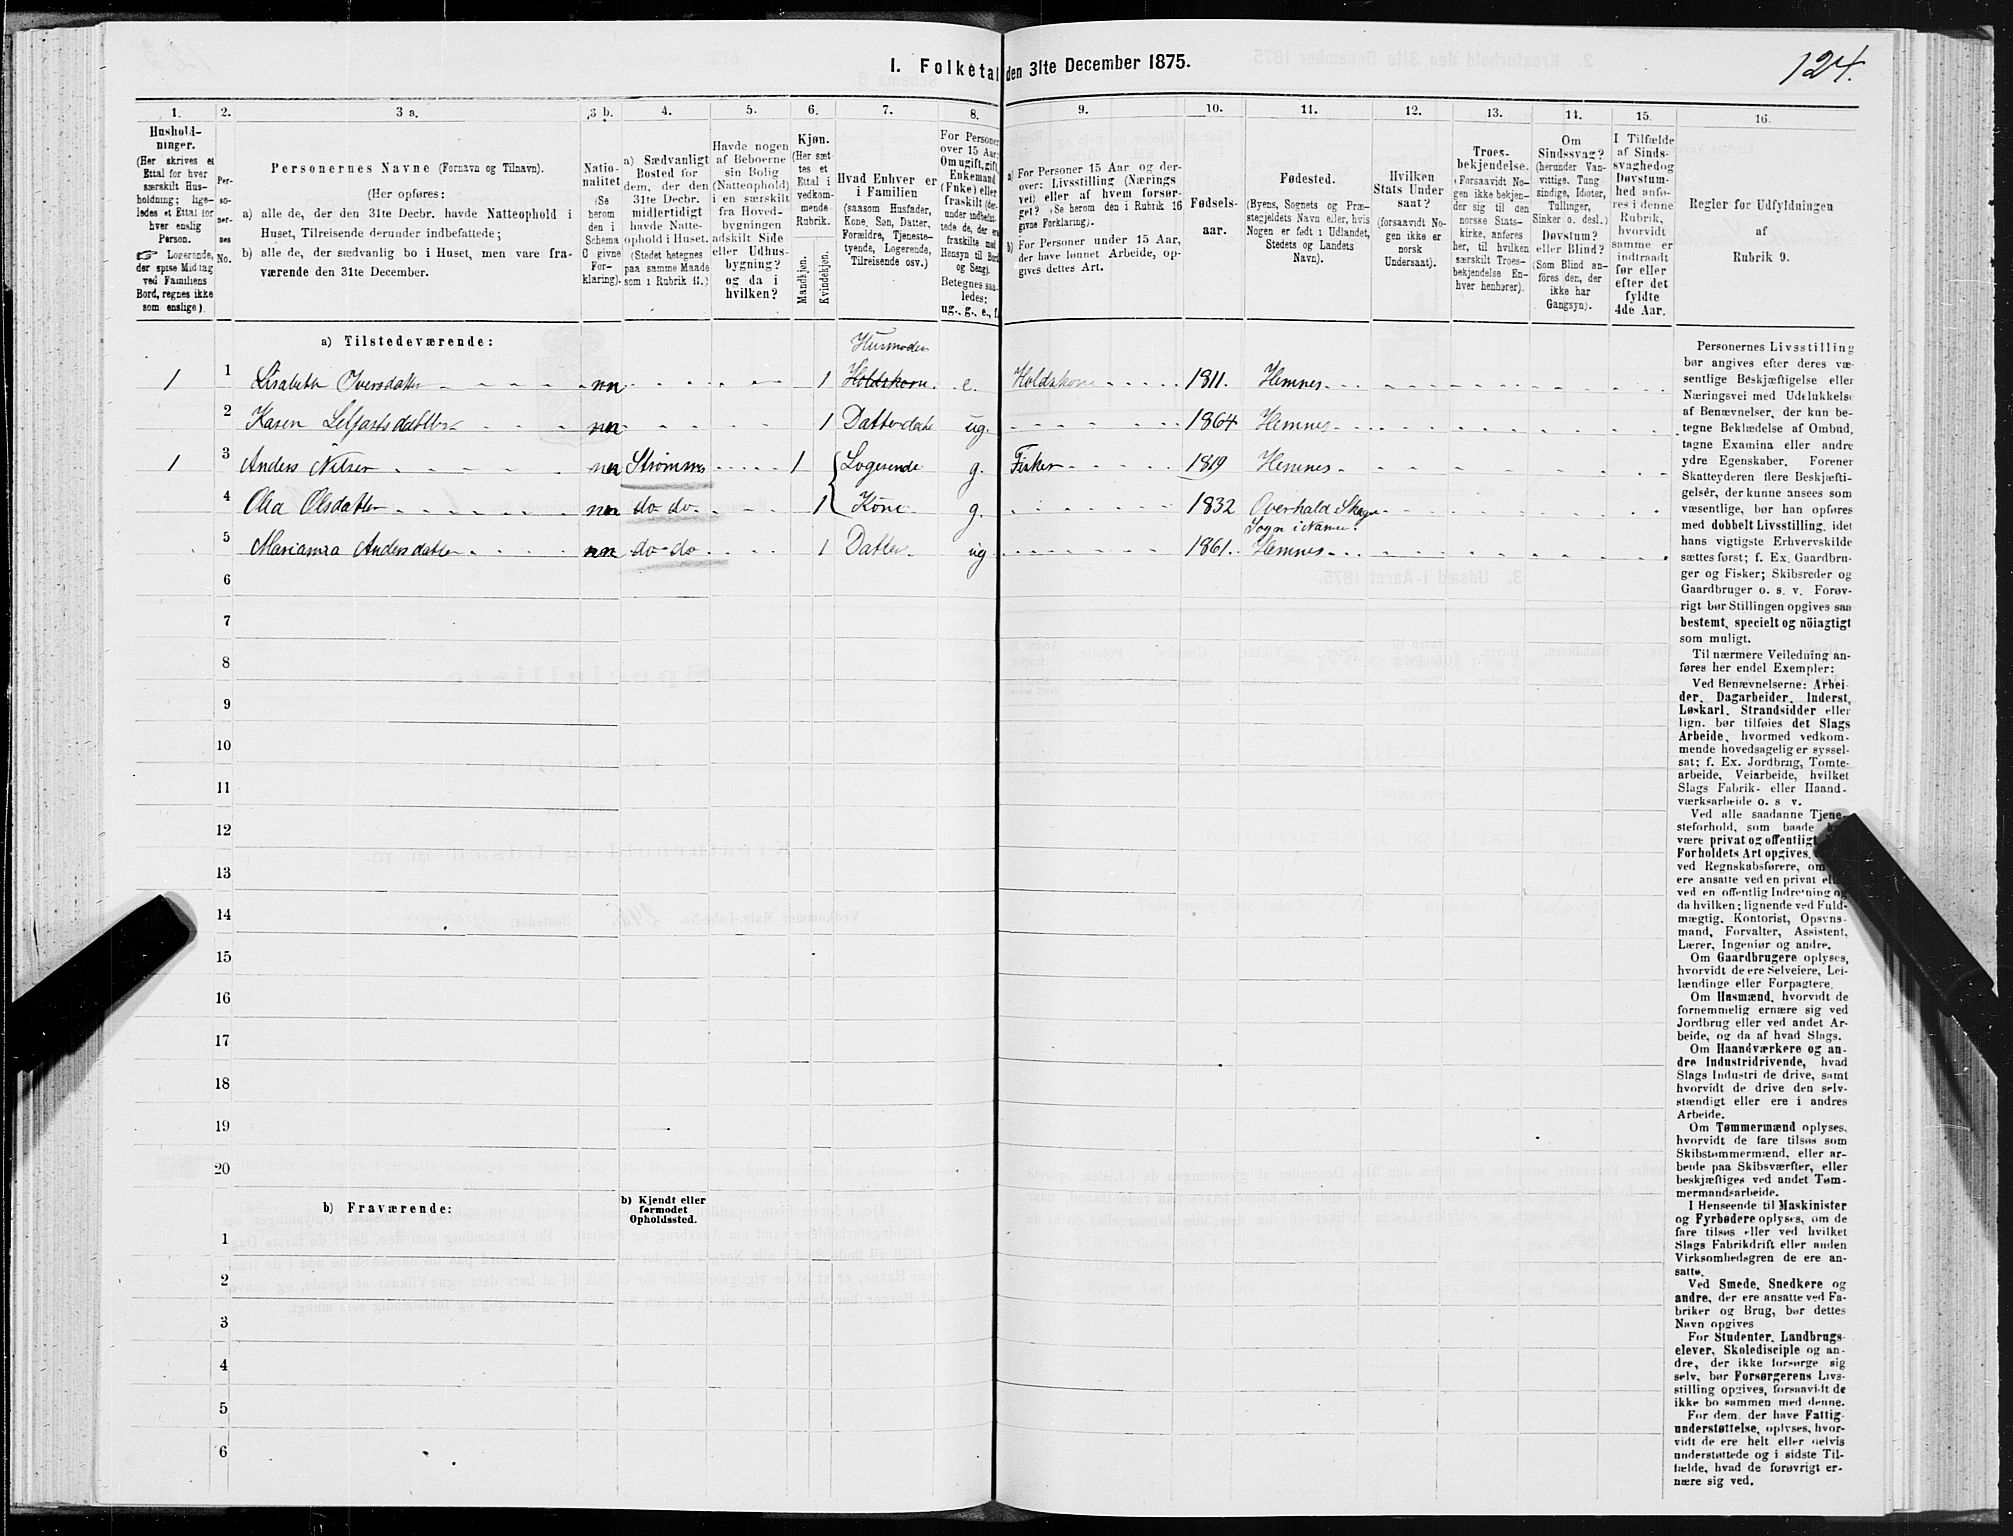 I. Folketal den 31te December 1875.
124.
1.
2.
3 a.
3 b.
4.
5.
6.
7.
8.
9.
10.
11.
12.
13.
14.
15.
16.
Hushold-
ninger.
(Her skrives et
Ettal for hver
særskilt Hus-
holdning; lige-
ledes et Ettal for
hver enslig
Person.
☞ Logerende,
der spise Middag
ved Familiens
Bord, regnes ikke
som enslige).
Per-
so-
ner-
nes
No.
Personernes Navne (Fornavn og Tilnavn).
(Her opføres:
a) alle de, der den 31te Decbr. havde Natteophold i
Huset, Tilreisende derunder indbefattede;
b) alle de, der sædvanlig bo i Huset, men vare fra-
værende den 31te December.
Natio-
nalitet
(Se
herom
den i
Schema
C givne
For-
klaring).
a) Sædvanligt
Bosted for
dem, der den
31te Decbr.
midlertidigt
havde Natte-
ophold i Huset.
(Stedet betegnes
paa samme Maade
som i Rubrik 11.)
Havde nogen
af Beboerne
sin Bolig
(Natteophold)
i en særskilt
fra Hoved-
bygningen
adskilt Side-
eller Udhus-
bygning?
og da i
hvilken?
Kjøn.
(Her sæt-
tes et
Ettal i
vedkom-
mende
Rubrik.
Mandkjøn.
Kvindekjøn.
Hvad Enhver er
i Familien
(saasom Husfader,
Kone, Søn, Datter,
Forældre, Tjeneste-
tyende, Logerende,
Tilreisende osv.)
For Personer
over 15 Aar:
Om ugift, gift,
Enkemand
(Enke) eller
fraskilt (der-
under indbefat-
tede de, der ere
fraskilte med
Hensyn til Bord
og Seng).
Betegnes saa-
ledes:
ug., g., e., f.
a) For Personer 15 Aar og der-
over: Livsstilling (Nærings-
vei) eller af hvem forsør-
get? (Se herom den i Rubrik 16
givne Forklaring).
b) For Personer under 15 Aar,
der have lønnet Arbeide, op-
gives dettes Art.
Fødsels-
aar.
Fødested.
(Byens, Sognets og Præ-
stegjeldets Navn eller, hvis
Nogen er født i Udlandet,
Stedets og Landets
Navn).
Hvilken
Stats Under-
saat?
(forsaavidt No-
gen ikke er
norsk
Undersaat).
Troes-
bekjendelse.
(Forsaavidt No-
gen ikke bekjen-
der sig til den
norske Stats-
kirke, anføres
her, til hvilken
særskilt Troes-
bekjendelse En-
hver henhører).
Om
Sindssvag?
(herunder Van-
vittige, Tung-
sindige, Idioter,
Tullinger,
Sinker o. desl.)
Døvstum?
eller Blind?
(Som Blind an-
føres den, der
ikke har
Gangsyn).
I Tilfælde
af Sinds-
svaghed og
Døvstum-
hed anfø-
res i denne
Rubrik,
hvorvidt
samme er
indtraadt
før eller
efter det
fyldte
4de Aar.
Regler for Udfyldningen
af
Rubrik 9.
a) Tilstedeværende:
Husmoder
1 1 Lisabeth Iversdatter nn 1 Holdskone e. Holdskone 1811. Hemnes
2 Karen nn 1 Datterdatt ug. 1864 Hemnes
1 3 Anders Nilsen nn Strømnes 1 Logerende g. Fisker 1819 Hemnes
4 Olia Olsdatter nn do do 1 Kone g. 1832 Overhald
Sogn i
5 Andersdatter nn do do 1 Datter ug 1861. Hemnes
6
7
8
9
10
11
12
13
14
15
16
17
18
19
20
b) Fraværende:
b) Kjendt eller
formodet
Opholdssted.
1
2
3
4
5
6
Personernes Livsstilling
bør angives efter deres væ-
sentlige Beskjæftigelse eller
Næringsvei med Udelukkelse
af Benævnelser, der kun be-
tegne Beklædelse af Ombud,
tagne Examina eller andre
ydre Egenskaber. Forener
Skatteyderen flere Beskjæfti-
gelser, der kunne ansees som
væsentlige, bør han opføres
med dobbelt Livsstilling, idet
hans vigtigste Erhvervskilde
sættes først; f. Ex. Gaardbru-
ger og Fisker; Skibsreder og
Gaardbruger o. s. v. Forøv-
rigt bør Stillingen opgives saa
bestemt, specielt og nöiagtigt
som muligt.
Til nærmere Veiledning an-
føres her endel Exempler:
Ved Benævnelserne: Arbei-
der, Dagarbeider, Inderst,
Løskarl, Strandsidder eller
lign. bør tilføies det Slags
Arbeide, hvormed vedkom-
mende hovedsagelig er syssel-
sat; f. Ex. Jordbrug, Tomte-
arbeide, Veiarbeide, hvilket
Slags Fabrik- eller Haand-
værksarbeide o. s. v.
Ved alle saadanne Tjene-
steforhold, som baade
være privat og offentligt
Forholdets Art opgives,
ved Regnskabsførere, om
ere ansatte ved en privat
ved en offentlig Indretning og
da hvilken; lignende ved Fuld-
mægtig, Kontorist, Opsyns-
mand, Forvalter, Assistent,
Lærer, Ingeniør og andre.
Om Gaardbrugere oplyses,
hvorvidt de ere Selveiere, Lei-
lændinge eller Forpagtere.
Om Husmænd, hvorvidt de
fornemmelig ernære sig ved
Jordbrug eller ved andet Ar-
beide, og da af hvad Slags.
Om Haandværkere og an-
dre Industridrivende, hvad
Slags Industri de drive, samt
hvorvidt de drive den selv-
stændigt eller ere i andres
Arbeide.
Om Tømmermænd oplyses,
hvorvidt de fare tilsøs som
Skibstømmermænd, eller ar-
beide paa Skibsværfter, eller
beskjæftiges ved andet Tøm-
mermandsarbeide.
I Henseende til Maskinister
og Fyrbødere oplyses, om de
fare tilsøs eller ved hvilket
Slags Fabrikdrift eller anden
Virksomhedsgren de ere an-
satte.
Ved Smede, Snedkere og
andre, der ere ansatte ved Fa-
briker og Brug, bør dettes
Navn opgives
For Studenter, Landbrugs-
elever, Skoledisciple og an-
dre, der ikke forsørge sig
selv, bør Forsørgerens Livs-
stilling opgives, forsaavidt de
ikke bo sammen med denne.
For dem, der have Fattig-
understøttelse, oplyses, hvor-
vidt de ere helt eller delvis
understøttede og i sidste Til-
fælde, hvad de forøvrigt er-
nære sig ved.